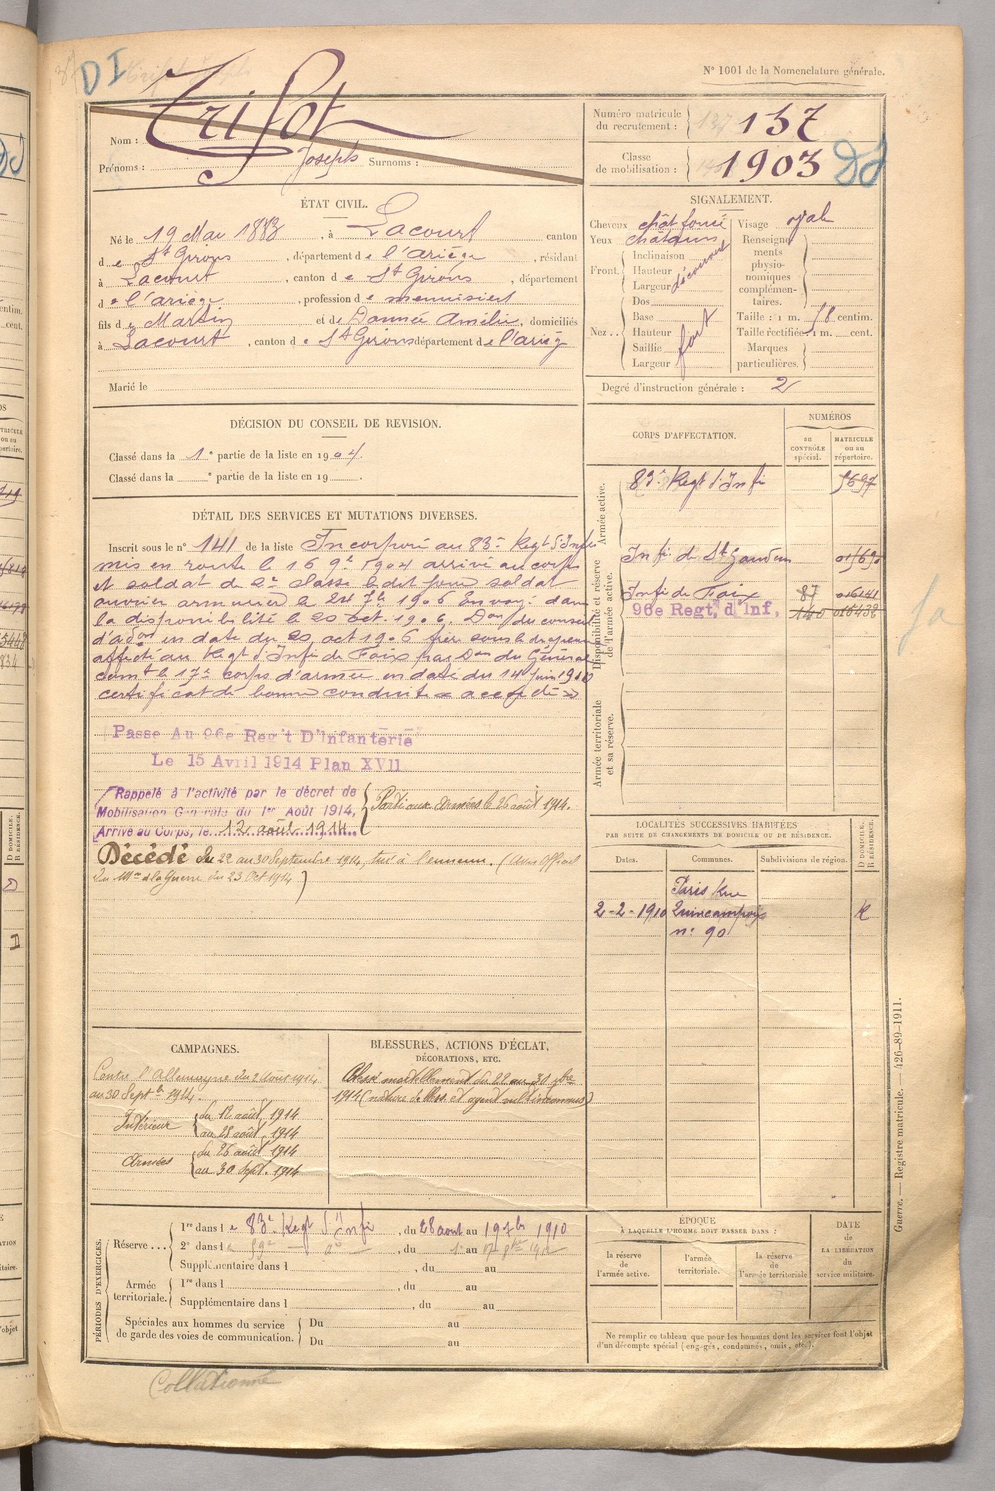 DI
N° 1001 de la Nomenclature générale.
Nom : Trifot
Prénoms : Joseph Surnoms :
Numéro matricule du recrutement : 137
Classe de mobilisation : 1903
DI
ÉTAT CIVIL.
Né le 19 Mai 1883, à Lacourt canton
d e St Girons, département d e l'ariège, résidant
à Lacourt, canton d e St Girons, département
d e l'ariège, profession d e menuisier
fils d e Martin et de Bonnée Amélie, domiciliés
à Lacourt, canton d e St Girons département d e l'arièg
Marié le
SIGNALEMENT.
Cheveux chât foncé
Yeux châtains
Front. Inclinaison
Hauteur
Largeur découvert
Nez Dos
Base
Hauteur fort
Saillie
Largeur
Visage oval
Renseignements physionomiques complémentaires.
Taille : 1 m. centim.
Taille rectifiée : 1 m. cent.
Marques particulières.
Degré d'instruction générale : 2
DÉCISION DU CONSEIL DE REVISION.
Classé dans la 1e partie de la liste en 1904.
Classé dans la e partie de la liste en 19 .
DÉTAIL DES SERVICES ET MUTATIONS DIVERSES.
Inscrit sous le n° 141 de la liste Incorporé au 83e Regt d'Infie
mis en route le 16 9e 1904 arrivé au corps
et soldat de 2e classe le dit jour soldat
ouvrier armurier le 1906 Envoyé dans
la disponibilité le 20 oct. 1906. Don du conseil
d'adon en date du 20 oct 1906
affecté au Regt d'Infie de Foix pas Don du Général
comt le 17e corps d'armée en date du 14 juin 1910
certificat de bonne conduite « accordé »
Passe Au 96e Reg't D'Infanterie
Le 15 Avril 1914 Plan XVII
Rappelé à l'activité par le décret de
Mobilisation Générale du 1er Août 1914,
Arrivé au Corps, le 12 août 1914.
Parti aux Armées le 26 août 1914.
Décédé du 22 au 30 Septembre 1914, tué à l'ennemi. (Avis Officiel
du Mre de la Guerre du 23 Oct 1914)
CORPS D'AFFECTATION.
NUMÉROS
AU CONTRÔLE spécial.
MATRICULE ou au répertoire.
Armée active.
83e Regt d'Infie 5697
Disponibilité et réserve de l'armée active.
Infie de St Gaudens
Infie de Foix 87 016141
96e Regt. d'Inf, 140 016438
Armée territoriale et sa réserve.
LOCALITÉS SUCCESSIVES HABITÉES
PAR SUITE DE CHANGEMENTS DE DOMICILE OU DE RÉSIDENCE.
Dates. Communes. Subdivisions de région. D DOMICILE. R RÉSIDENCE.
Paris Rue
2-2-1910 Quincampoix R
n° 90
CAMPAGNES.
Contre l'Allemagne du 2 Août 1914
au 30 Septbre 1914.
Intérieur du 12 août 1914
au 25 août 1914
Armées du 26 août 1914
au 30 Sept. 1914
BLESSURES, ACTIONS D'ÉCLAT,
DÉCORATIONS, ETC.
Blessé mortellement du 22 au 30 7bre
1914 (nature de bless. et agent vulnt inconnus)
PÉRIODES D'EXERCICES.
Réserve... 1re dans l e 83e Regt d'Infie, du 28 aout au 19 7bre 1910
2e dans l , du au
Supplémentaire dans l , du au
Armée territoriale. 1re dans l , du au
Supplémentaire dans l , du au
Spéciales aux hommes du service de garde des voies de communication. Du au
Du au
ÉPOQUE
À LAQUELLE L'HOMME DOIT PASSER DANS :
la réserve de l'armée active. l'armée territoriale. la réserve de l'armée territoriale
DATE de LA LIBÉRATION du service militaire.
Ne remplir ce tableau que pour les hommes dont les services font l'objet
d'un décompte spécial (engagés, condamnés, omis, etc.).
Guerre. — Registre matricule. — 426-89-1911.
Collationné